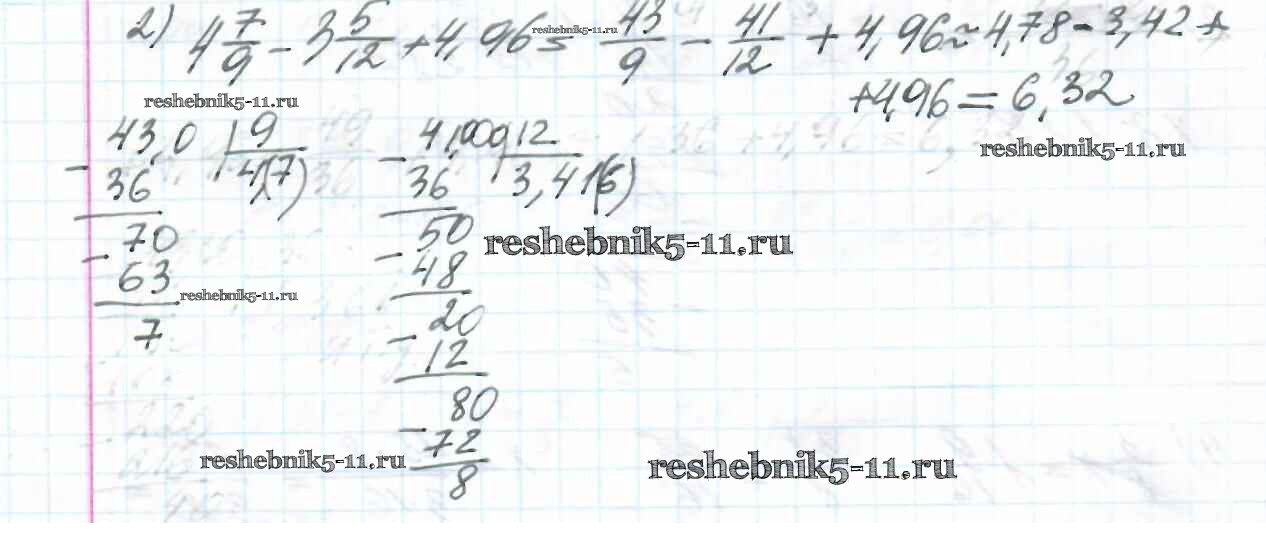 2) 4 7/9 - 3 5/12 + 4,96 = 43/9 - 41/12 + 4,96 ≈ 4,78 - 3,42 +
reshebnik5-11.ru
+4,96 = 6,32
reshebnik5-11.ru
reshebnik5-11.ru
43,0 | 9
- 36 4,(7)
- 70
63
7
41,000 | 12
- 36 3,41(6)
- 50
48
- 20
12
80
- 72
8
reshebnik5-11.ru
reshebnik5-11.ru
reshebnik5-11.ru
reshebnik5-11.ru